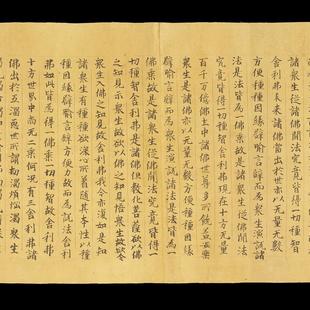 諸眾生從諸佛聞法究竟皆得一切種智
舍利弗未來諸佛當出於世亦以無量無數
方便種種因緣譬喻言辭而為眾生演說諸
法是法皆為一佛乘故是諸眾生從佛聞法
究竟皆得一切種智舍利弗現在十方無量
百千萬億佛土中諸佛世尊多所饒益安樂
眾生是諸佛亦以無量無數方便種種因緣
譬喻言辭而為眾生演說諸法是法皆為一
佛乘故是諸眾生從佛聞法究竟皆得一
切種智舍利弗是諸佛但教化菩薩欲以佛
之知見示眾生故欲以佛之知見悟眾生故欲令
眾生入佛之知見故舍利弗我今亦復如是知
諸眾生有種種欲深心所著隨其本性以種
種因緣譬喻言辭方便力故而為說法舍利
弗如此皆為得一佛乘一切種智故舍利弗
十方世界中尚無二乘何況有三舍利弗諸
佛出於五濁惡世所謂劫濁煩惱濁眾生